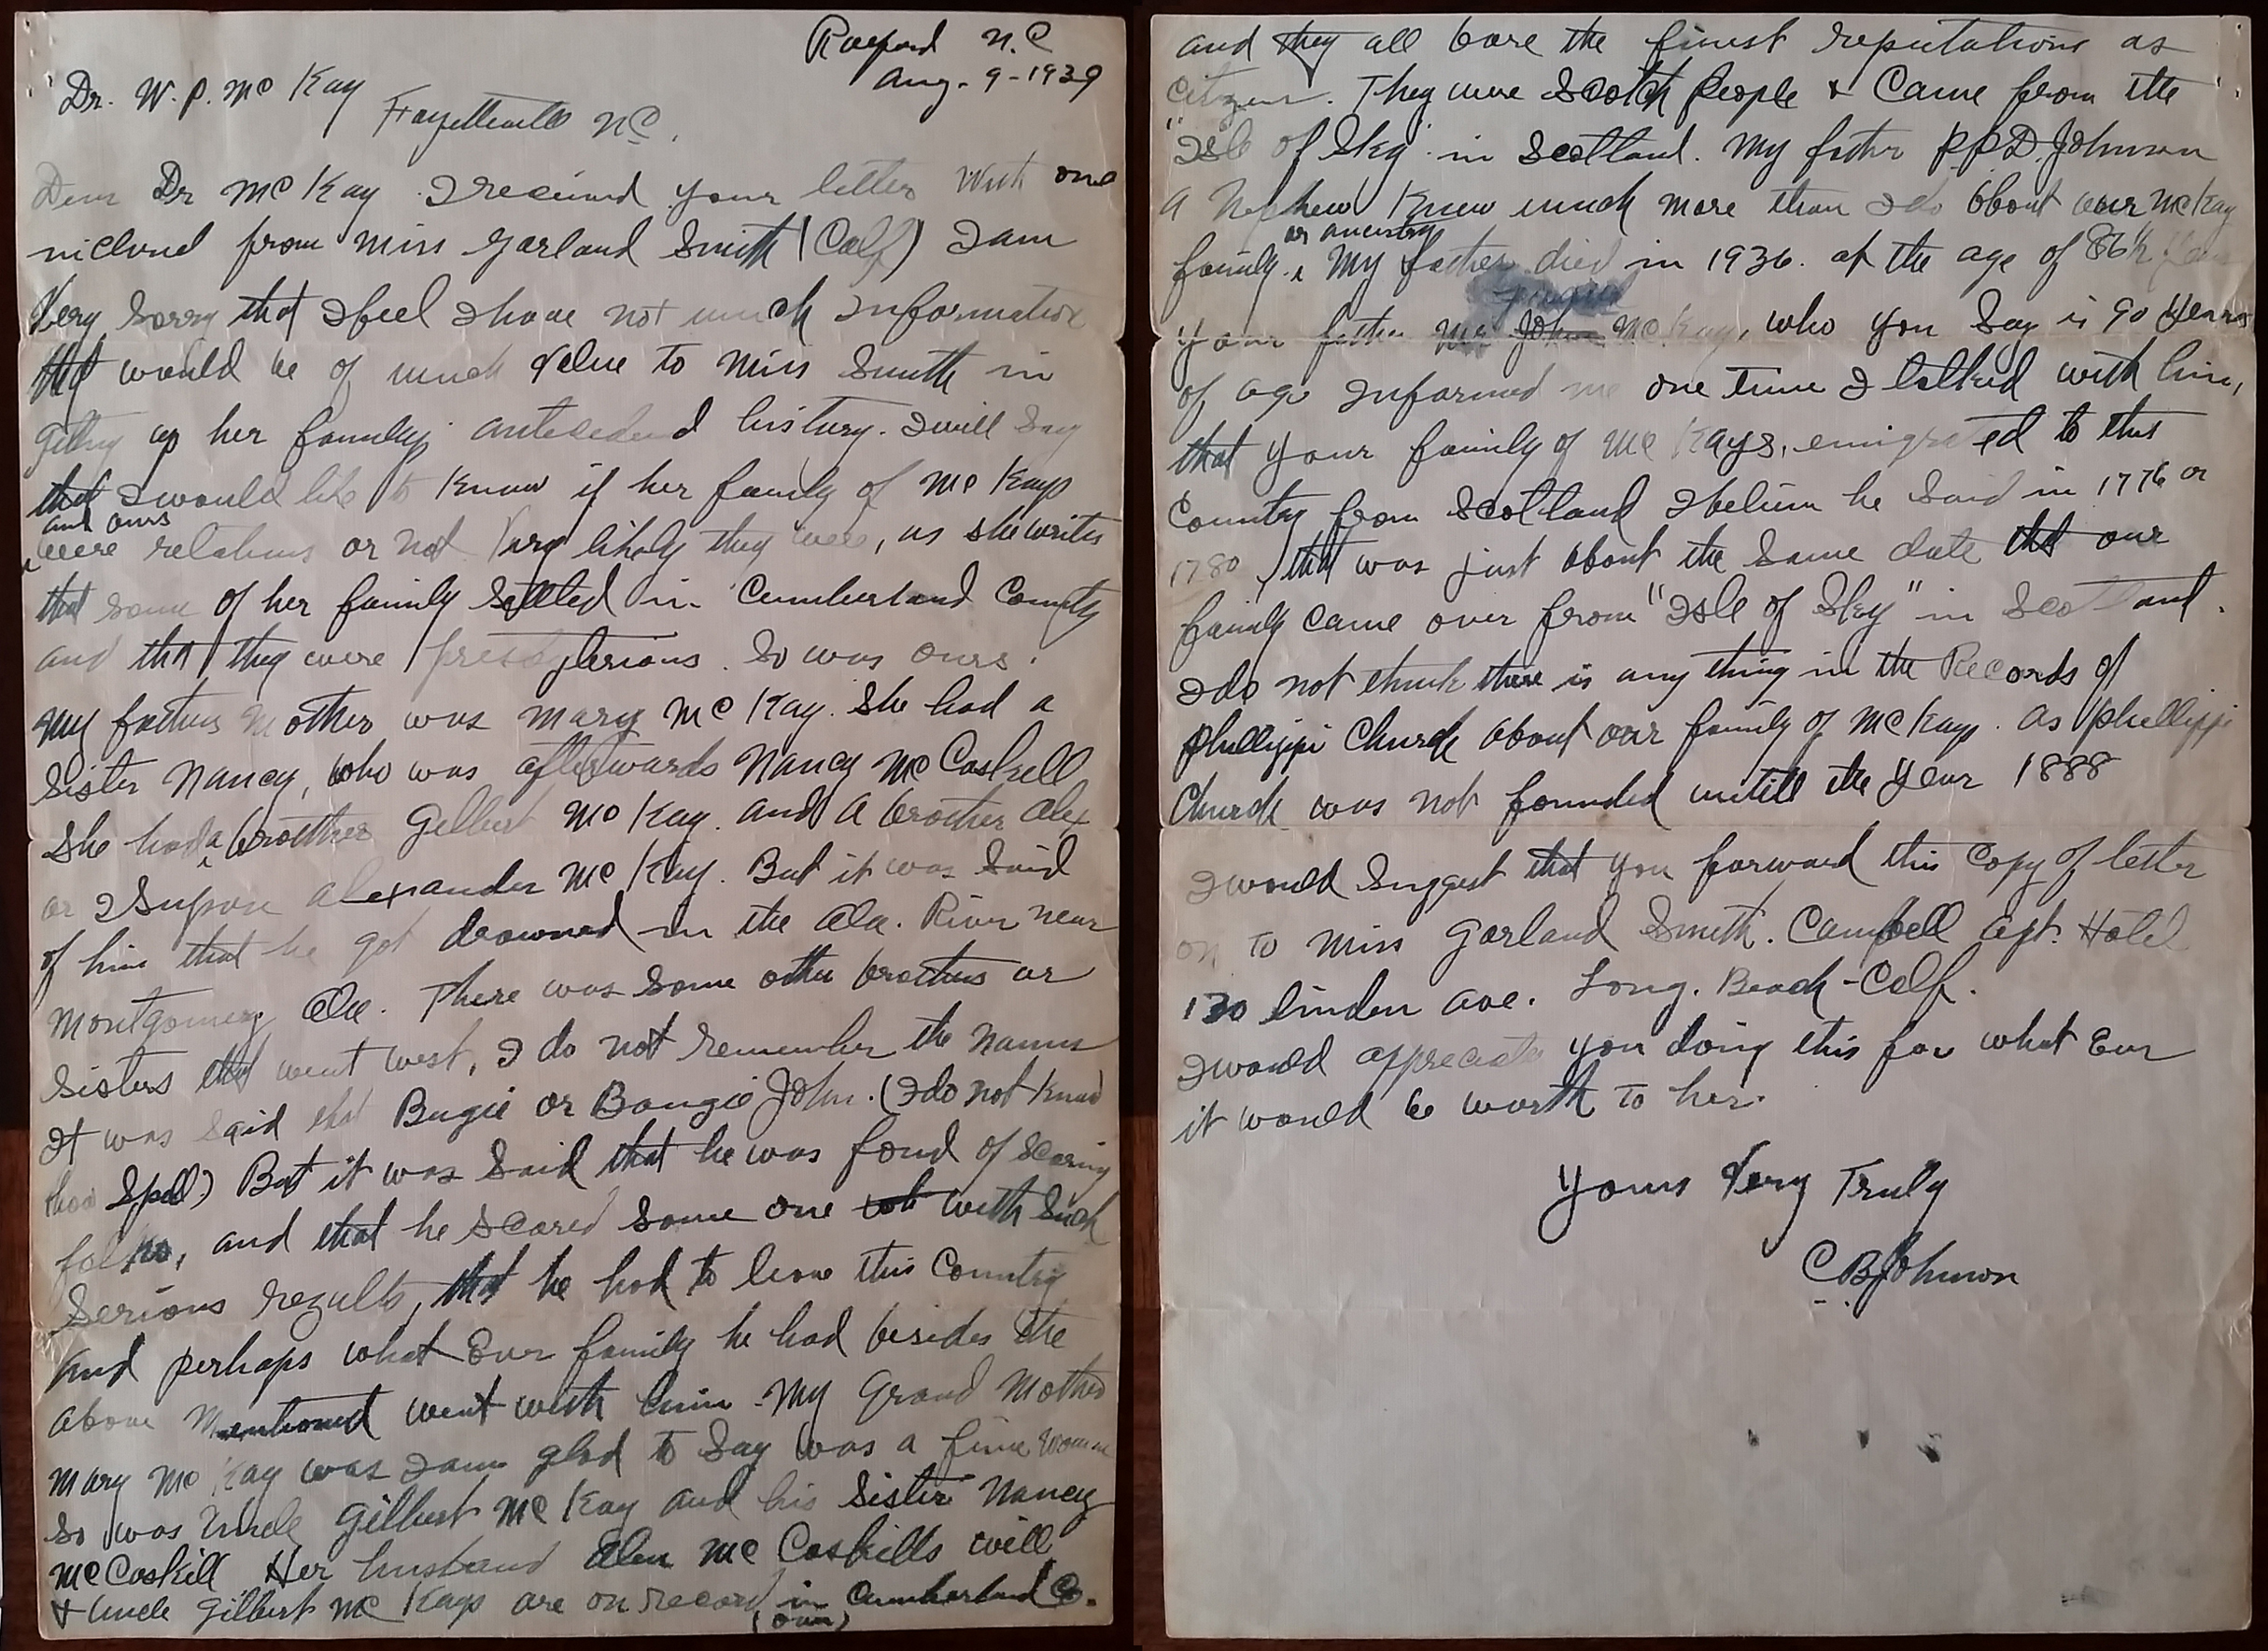 Raeford N.C
Aug. 9-1939
Dr. W. P. Mc Kay
Fayetteville NC.
Dear Dr Mc Kay. I recieved your letter with one
inclosed from Miss Garland Smith (Calf) I am
Very Sorry that I feel I have not much Information
that would be of much Value to Miss Smith in
getting up her family antecedend history. I will Say
that I would like to Know if her family of Mc Kays
and ours
were relations or not Very likely they were, as she writes
that some of her family Settled in Cumberland County
and that they were presbyterians. So was ours.
My fathers Mother was Mary Mc Kay. She had a
Sister Nancy, who was afterwards Nancy Mc Caskill
She had a brother Gilbert Mc Kay. and a brother Alex
or I Supose Alexander Mc Kay. But it was Said
of him that he got drowned in the Ala. River near
Montgomery Ala. There was some other brothers or
Sisters that went west, I do not remember the names
It was said that Bugie or Bougie John. (I do not know
how Spell) But it was Said that he was fond of Scaring
folks, and that he scared some one with Such
Serious results, that he had to leave this Country
And perhaps what Ever family he had besides the
above Mentioned went with him. My Grand Mother
Mary Mc Kay was I am glad to Say was a fine woman
So was Uncle Gilbert Mc Kay and his Sister Nancy
McCaskill Her husband Alen Mc Caskills will
& Uncle Gilbert Mc Kays are on record in Cumberland Co.
(our)
and they all bore the finest reputations as
Citizens. They were Scotch People & Came from the
"Isle of Sky" in Scotland. My father P.P.D. Johnson
a Nephew Knew much more than I do about our Mc Kay
or ancestry
family. My father died in 1936. at the age of 86 1/2 Years
your father Mr John Mc Kay, who you Say is 90 years
of age Informed me one time I talked with him,
that your family of Mc Kays, emigrated to this
Country from Scotland I believe he Said in 1776 or
1780, that was just about the Same date that our
family came over from "Isle of Sky" in Scotland.
I do not think there is any thing in the Records of
Phillippi Church about our family of Mc Kays. as Phillippi
Church was not founded untill the year 1888
I would Suggest that you forward this Copy of letter
on to Miss Garland Smith. Campbell Apt. Hotel
130 linden ave. Long. Beach-Calf.
I would appreciate you doing this for what Ever
it would be worth to her.
Yours Very Truly
C B Johnson